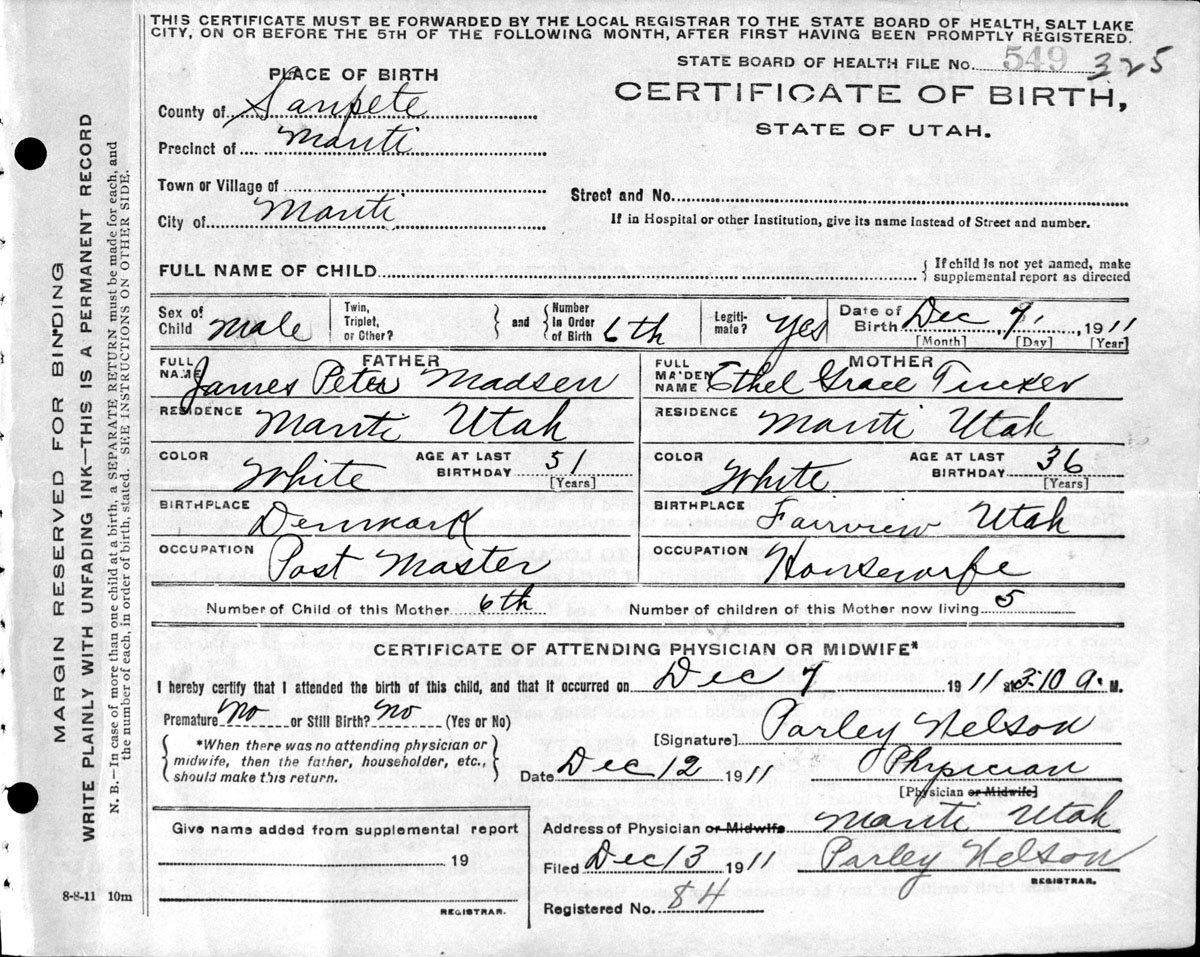 THIS CERTIFICATE MUST BE FORWARDED BY THE LOCAL REGISTRAR TO THE STATE BOARD OF HEALTH, SALT LAKE
CITY, ON OR BEFORE THE 5TH OF THE FOLLOWING MONTH, AFTER FIRST HAVING BEEN PROMPTLY REGISTERED.
STATE BOARD OF HEALTH FILE No. 549 325
PLACE OF BIRTH
CERTIFICATE OF BIRTH,
STATE OF UTAH.
County of Sanpete
Precinct of Manti
Town or Village of
Street and No.
City of Manti
If in Hospital or other Institution, give its name instead of Street and number.
FULL NAME OF CHILD
If child is not yet named, make
supplemental report as directed
Sex of Child Male Twin, Triplet, or Other? and Number in Order of Birth 6th Legiti-mate? Yes Date of Birth Dec 7, 1911
[Month] [Day] [Year]
FATHER MOTHER
FULL NAME James Peter Madsen FULL MAIDEN NAME Ethel Grace Tucker
RESIDENCE Manti Utah RESIDENCE Manti Utah
COLOR White AGE AT LAST BIRTHDAY 51 [Years] COLOR White AGE AT LAST BIRTHDAY 36 [Years]
BIRTHPLACE Denmark BIRTHPLACE Fairview Utah
OCCUPATION Post Master OCCUPATION Housewife
Number of Child of this Mother 6th Number of children of this Mother now living 5
CERTIFICATE OF ATTENDING PHYSICIAN OR MIDWIFE*
I hereby certify that I attended the birth of this child, and that it occurred on Dec 7 1911 at 3-10 a. M.
Premature No or Still Birth? No (Yes or No)
[Signature] Parley Nelson
*When there was no attending physician or
midwife, then the father, householder, etc.,
should make this return.
Date Dec 12 1911 Physician
[Physician or Midwife]
Give name added from supplemental report
Address of Physician or Midwife Manti Utah
19
Filed Dec 13 1911 Parley Nelson
REGISTRAR.
REGISTRAR.
Registered No. 84
8-8-11 10m
MARGIN RESERVED FOR BINDING
WRITE PLAINLY WITH UNFADING INK—THIS IS A PERMANENT RECORD
N. B.—In case of more than one child at a birth, a SEPARATE RETURN must be made for each, and
the number of each, in order of birth, stated. SEE INSTRUCTIONS ON OTHER SIDE.